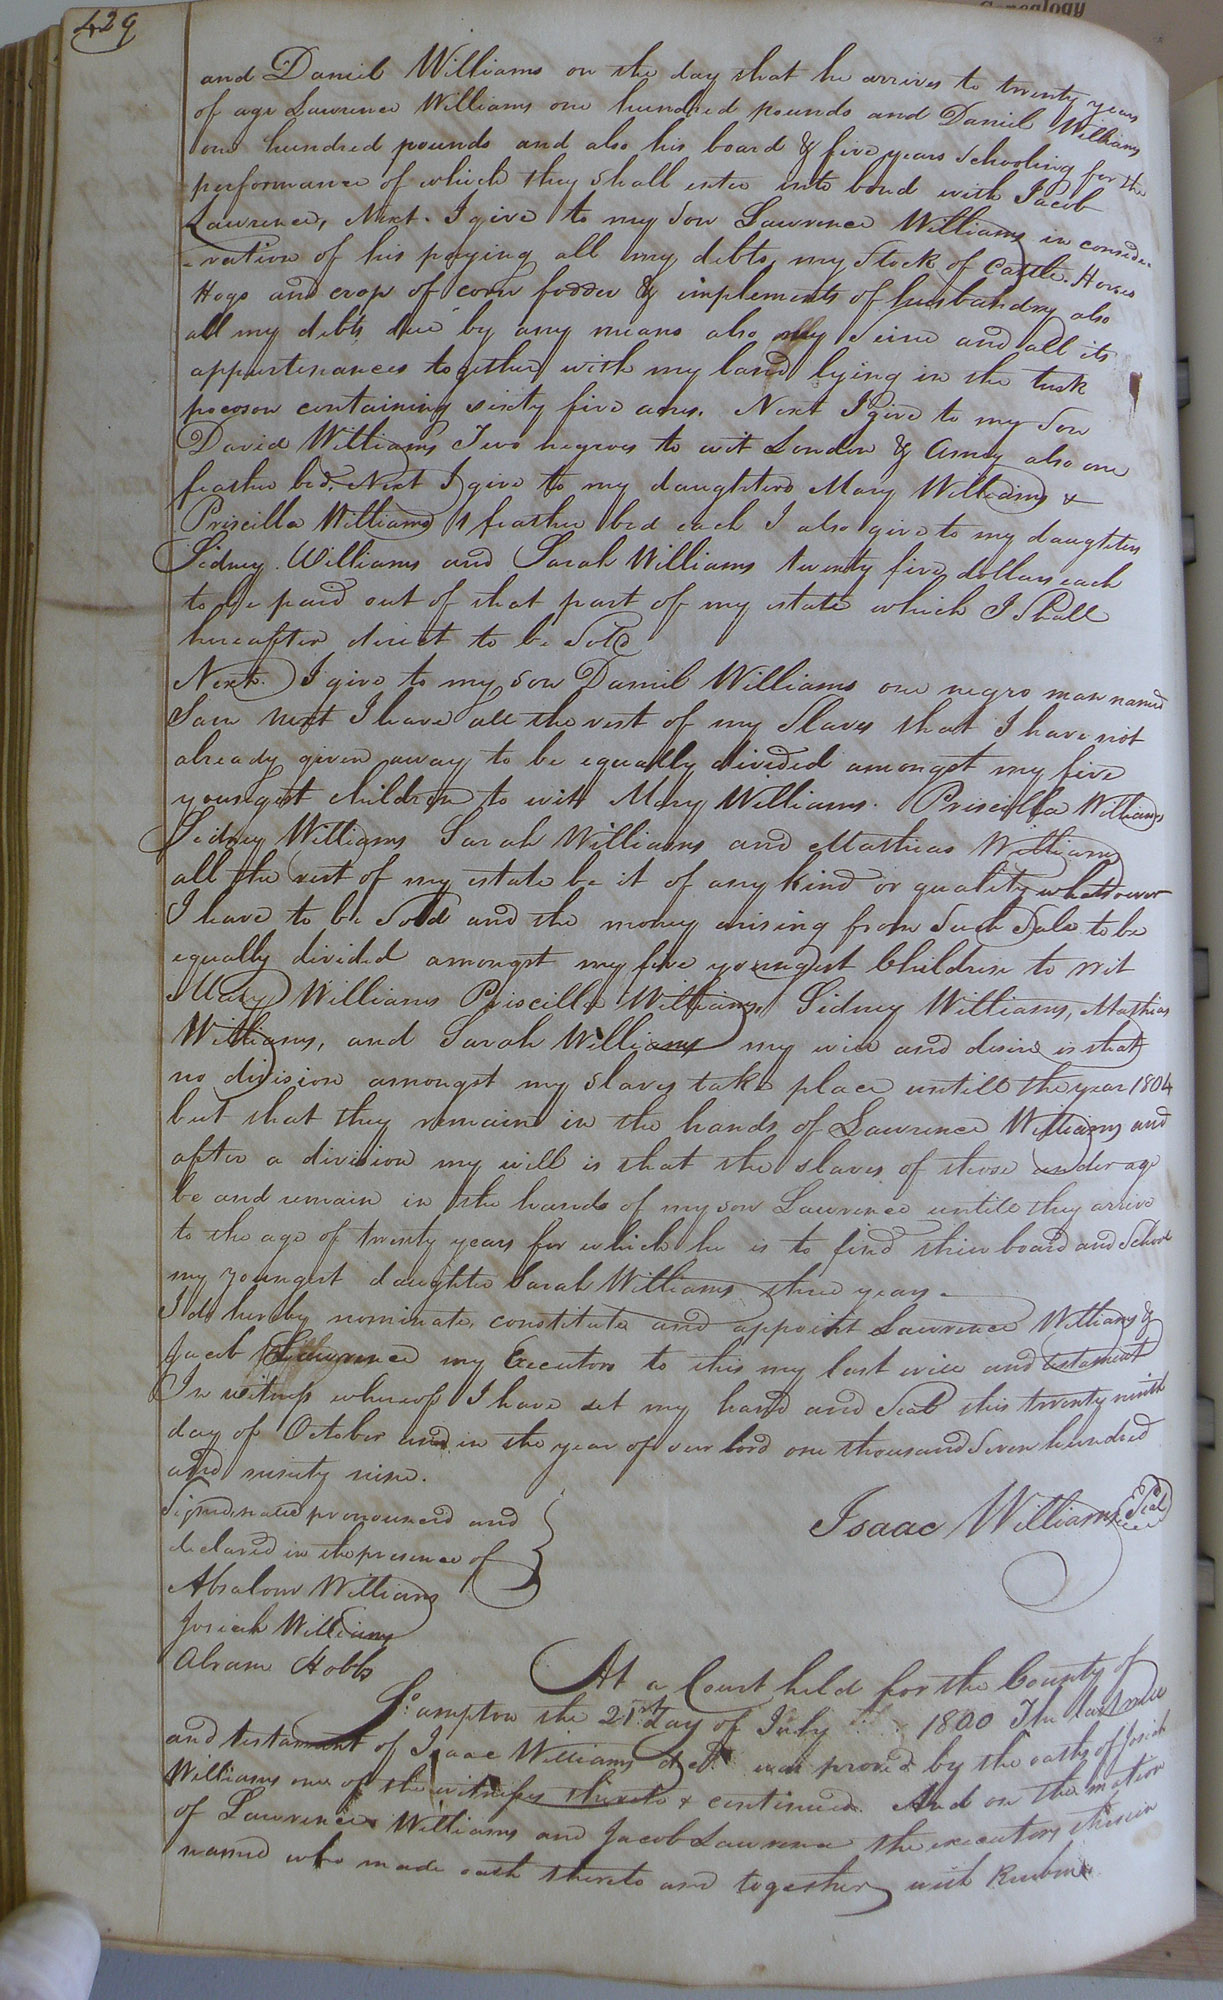 Genealogy
429
and Daniel Williams on the day that he arrives to twenty years
of age Lawrence Williams one hundred pounds and Daniel Williams
one hundred pounds and also his board & five years Schooling for the
performance of which they Shall enter into bond with Jacob
Lawrence, Next. I give to my Son Lawrence Williams in conside-
-ration of his paying all my debts, my Stock of Cattle. Horses
Hogs and crop of corn fodder & implements of husbandry also
all my debts due by any means also my Seine and all its
appurtenances together with my land lying in the tusk
pocoson containing sixty five acres. Next I give to my Son
David Williams Two negroes to wit London & Amey also one
feather bed. Next I give to my daughters Mary Williams &
Priscilla Williams 1 feather bed each I also give to my daughters
Sidney Williams and Sarah Williams twenty five dollars each
to be paid out of that part of my estate which I Shall
hereafter direct to be Sold
Next. I give to my Son Daniel Williams one negro man named
Sam Next I leave all the rest of my Slaves that I have not
already given away to be equally divided amongst my five
youngest children to wit Mary Williams. Priscilla Williams
Sidney Williams Sarah Williams and Mathias Williams
all the rest of my estate be it of any kind or quality whatsoever
I leave to be Sold and the money arising from Such Sale to be
equally divided amongst my five youngest Children to wit
Mary Williams Priscilla Williams, Sidney Williams, Mathias
Williams, and Sarah Williams my will and desire is that
no division amongst my Slaves take place untill the year 1804
but that they remain in the hands of Lawrence Williams and
after a division my will is that the slaves of those under age
be and remain in the hands of my son Lawrence untill they arrive
to the age of twenty years for which he is to find their board and School
my youngest daughter Sarah Williams three years.
I do hereby nominate, constitute and appoint Lawrence Williams &
Jacob Lawrence my Executors to this my last will and testament
In witness whereof I have set my hand and Seal this twenty ninth
day of October and in the year of our lord one thousand Seven hundred
and ninety nine.
Signed, Sealed pronounced and
declared in the presence of
Isaac Williams Seal
Absalom Williams
Josiah Williams
Abram Hobbs
At a Court held for the County of
So: ampton the 21st day of July 1800 The last will
and testament of Isaac Williams decd. was proved by the oaths of Josiah
Williams one of the witnesses thereto & continued. And on the motion
of Lawrence Williams and Jacob Lawrence the executors therein
named who made oath thereto and together with Reuben